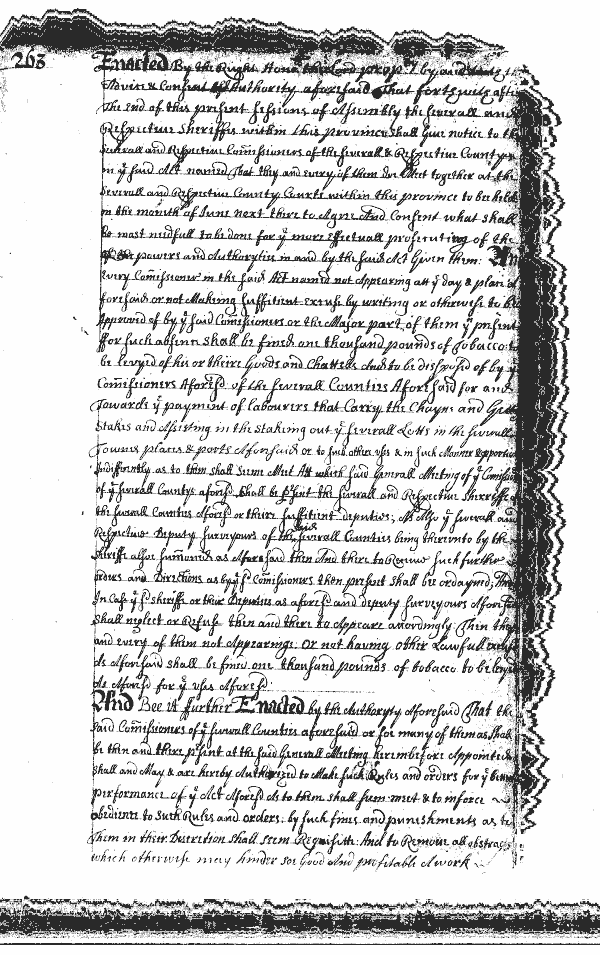 263
Enacted By the Right Honble the Lord propr by and
Advice & Consent of Authority aforesaid That forthwith after
The end of this present Sessions of Assembly the severall and
Respective Sheriffs within this province shall Give notice to the
severall and Respective Commissioners of the severall & Respective Countyes
in ye said Act named That they and every of them doe Meet together at the
severall and Respective County Courts within this province to bee held
in the month of June next there to Agree And Consent what shall
be most needfull to be done for ye more effectuall prosecuting of the
powers and Authorityes in and by the said Act Given them: And
every Comissioner in the said Act named not Appearing att ye day & place a
foresaid or not Making sufficient excuse by writing or otherwise to be
Approved of by ye said Comissioners or the Major part of them ye present
ffor such absence shall be fined one thousand pounds of Tobacco to
be levyed of his or theire Goods and Chattells And to be disposed of by ye
Comissioners Aforesd of the severall Counties Aforesaid for and
Towards ye payment of labourers that Carry the Chayne and
Stakes and Assisting in the staking out ye severall Lotts in the severall
Townes places & ports Aforesaid or to such other uses & in such Manner & proportion
Indifferently as to them shall seeme Meet Att which said Generall Meeting of ye Comissrs
of ye severall Countys aforesd shall be psent the severall and Respective Sherriffs of
the severall Counties Aforesd or theire sufficient deputies; As Also ye severall and
Respective Deputy surveyours of the said severall Counties being thereunto by the
sheriffe alsoe sumoned as Aforesaid then And there to Receive such further
orders and Directions as by ye sd Comissioners then present shall be ordayned; And
In Case ye sd sheriffe or their Deputies as aforesd and deputy surveyours Aforesd
shall neglect or Refuse then and there to Appeare accordingly Then they
and every of them not Appearing or not having other Lawfull excuse
As Aforesaid shall be fined one thousand pounds of tobacco to be levyed
As Aforesd for ye uses Aforesd
And Bee it further Enacted by the Authoryty Aforesaid That the
said Comissioners of ye severall Counties aforesaid or soe many of them as shall
be then and there psent at the said Generall Meeting hereinbefore Appointed
shall and May & are hereby Authorized to Make such Rules and orders for ye
performance of ye Act Aforesd As to them shall seem meet & to inforce
obedience to such Rules and orders: by such fines and punishments as to
Them in their Discretion shall seem Requisite: And to Remove all obstracts
which otherwise may hinder soe Good And profitable A work